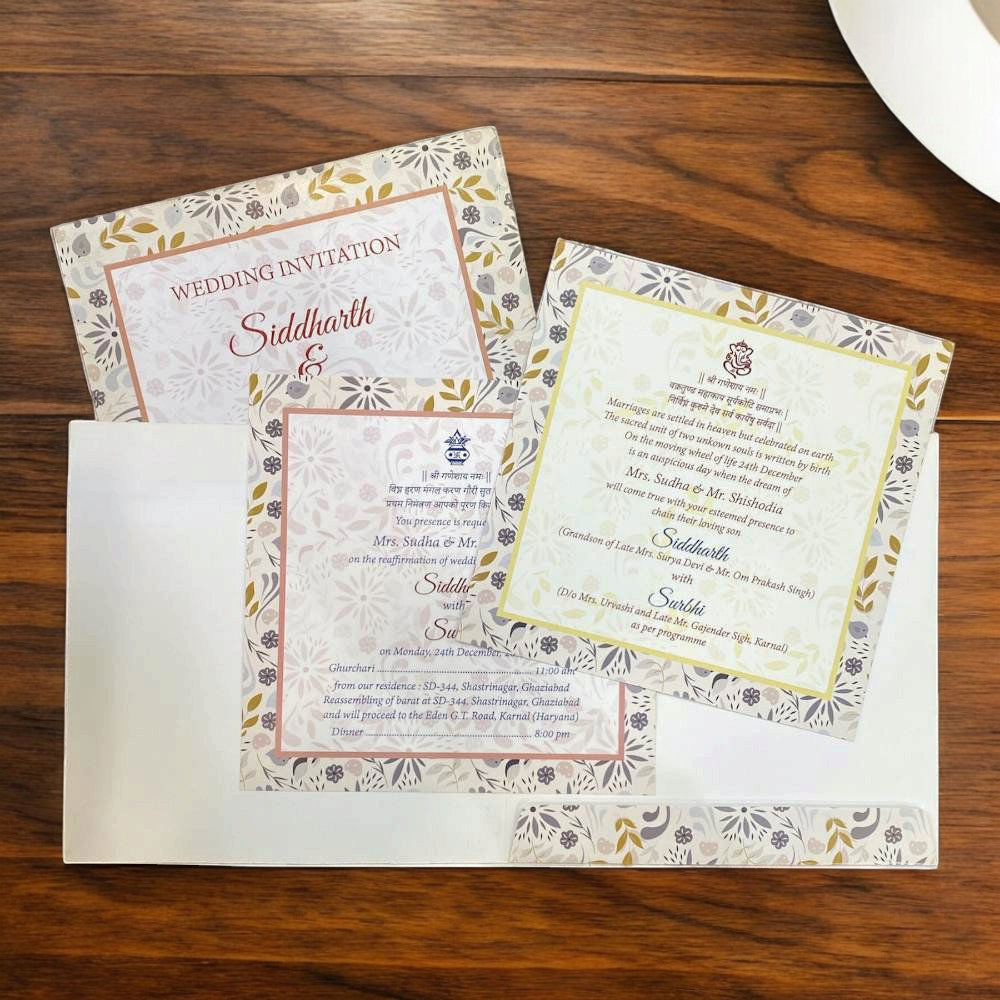 WEDDING INVITATION
Siddharth
&
|| श्री गणेशाय नमः ||
वक्रतुण्ड महाकाय सूर्यकोटि समाप्रभः |
निर्विघ्नं कुरुमे देव सर्व कार्येषु सर्वदा ||
Marriages are settled in heaven but celebrated on earth
The sacred unit of two unkown souls is written by birth
On the moving wheel of life 24th December
is an auspicious day when the dream of
Mrs. Sudha & Mr. Shishodia
will come true with your esteemed presence to
chain their loving son
Siddharth
(Grandson of Late Mrs. Surya Devi & Mr. Om Prakash Singh)
with
Surbhi
(D/o Mrs. Urvashi and Late Mr. Gajender Sigh, Karnal)
as per programme
|| श्री गणेशाय नमः||
विघ्न हरण मंगल करण गौरी सुत
प्रथम निमंत्रण आपको पूरण
You presence is
Mrs. Sudha & Mr.
on the reaffirmation of
with
on Monday, 24th December,
Ghurchari ........................................ 11:00 am
from our residence : SD-344, Shastrinagar, Ghaziabad
Reassembling of barat at SD-344, Shastrinagar, Ghaziabad
and will proceed to the Eden G.T. Road, Karnal (Haryana)
Dinner ........................................ 8:00 pm